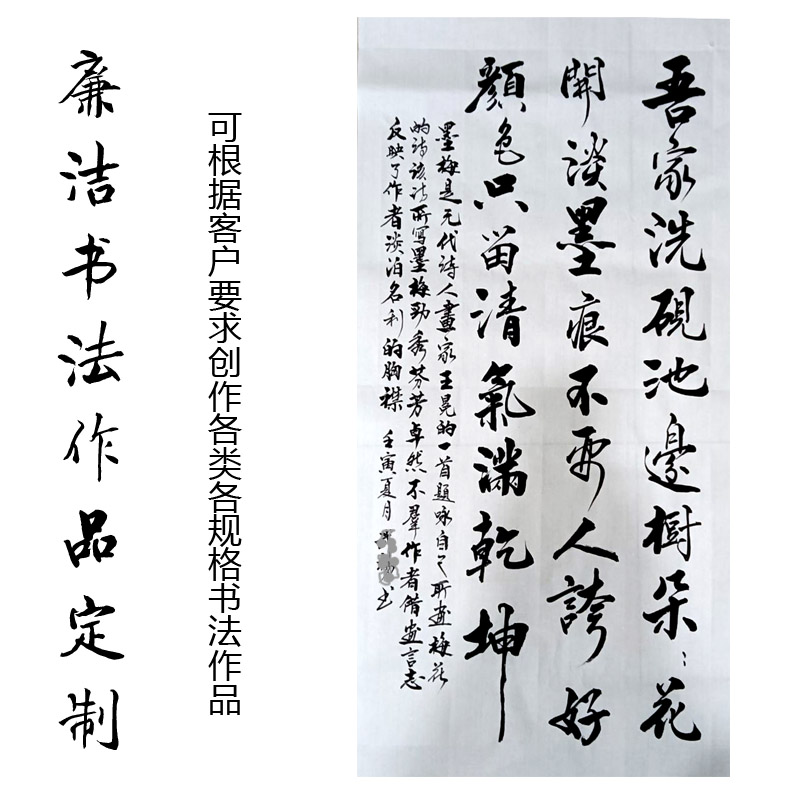 廉洁书法作品定制
可根据客户要求创作各类各规格书法作品
吾家洗硯池邊樹朵々花
開淡墨痕不要人誇好
顏色只留清氣滿乾坤
墨梅是元代詩人畫家王冕的一首題咏自己所畫梅花
的詩該詩所寫墨梅勁秀芬芳卓然不羣作者借畫言志
反映了作者淡泊名利的胸襟 壬寅夏月 书